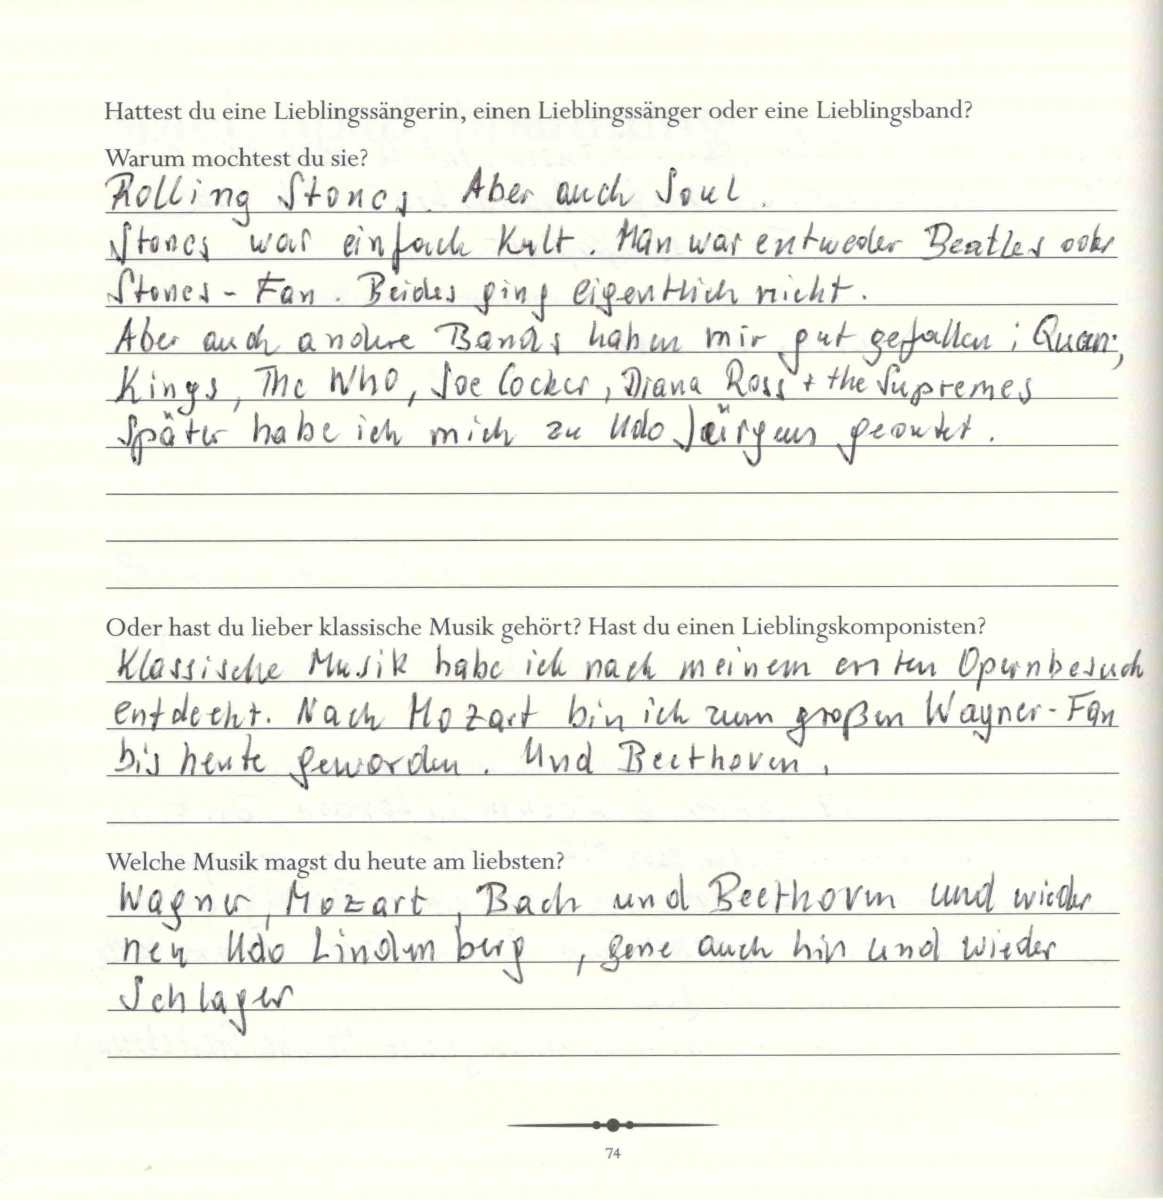 Hattest du eine Lieblingssängerin, einen Lieblingssänger oder eine Lieblingsband?
Warum mochtest du sie?
Rolling Stones. Aber auch Soul.
Stones war einfach Kult. Man war entweder Beatles oder
Stones-Fan. Beides ging eigentlich nicht.
Aber auch andere Bands haben mir gut gefallen:
Kings, The Who, Joe Cocker, Diana Ross + the Supremes
Später habe ich mich zu Udo Jürgens geoutet.
Oder hast du lieber klassische Musik gehört? Hast du einen Lieblingskomponisten?
Klassische Musik habe ich nach meinem ersten Opernbesuch
entdeckt. Nach Mozart bin ich zum großen Wagner-Fan
bis heute geworden. Und Beethoven.
Welche Musik magst du heute am liebsten?
Wagner, Mozart, Bach und Beethoven und wieder
neu Udo Lindenberg, gerne auch hin und wieder
Schlager
74